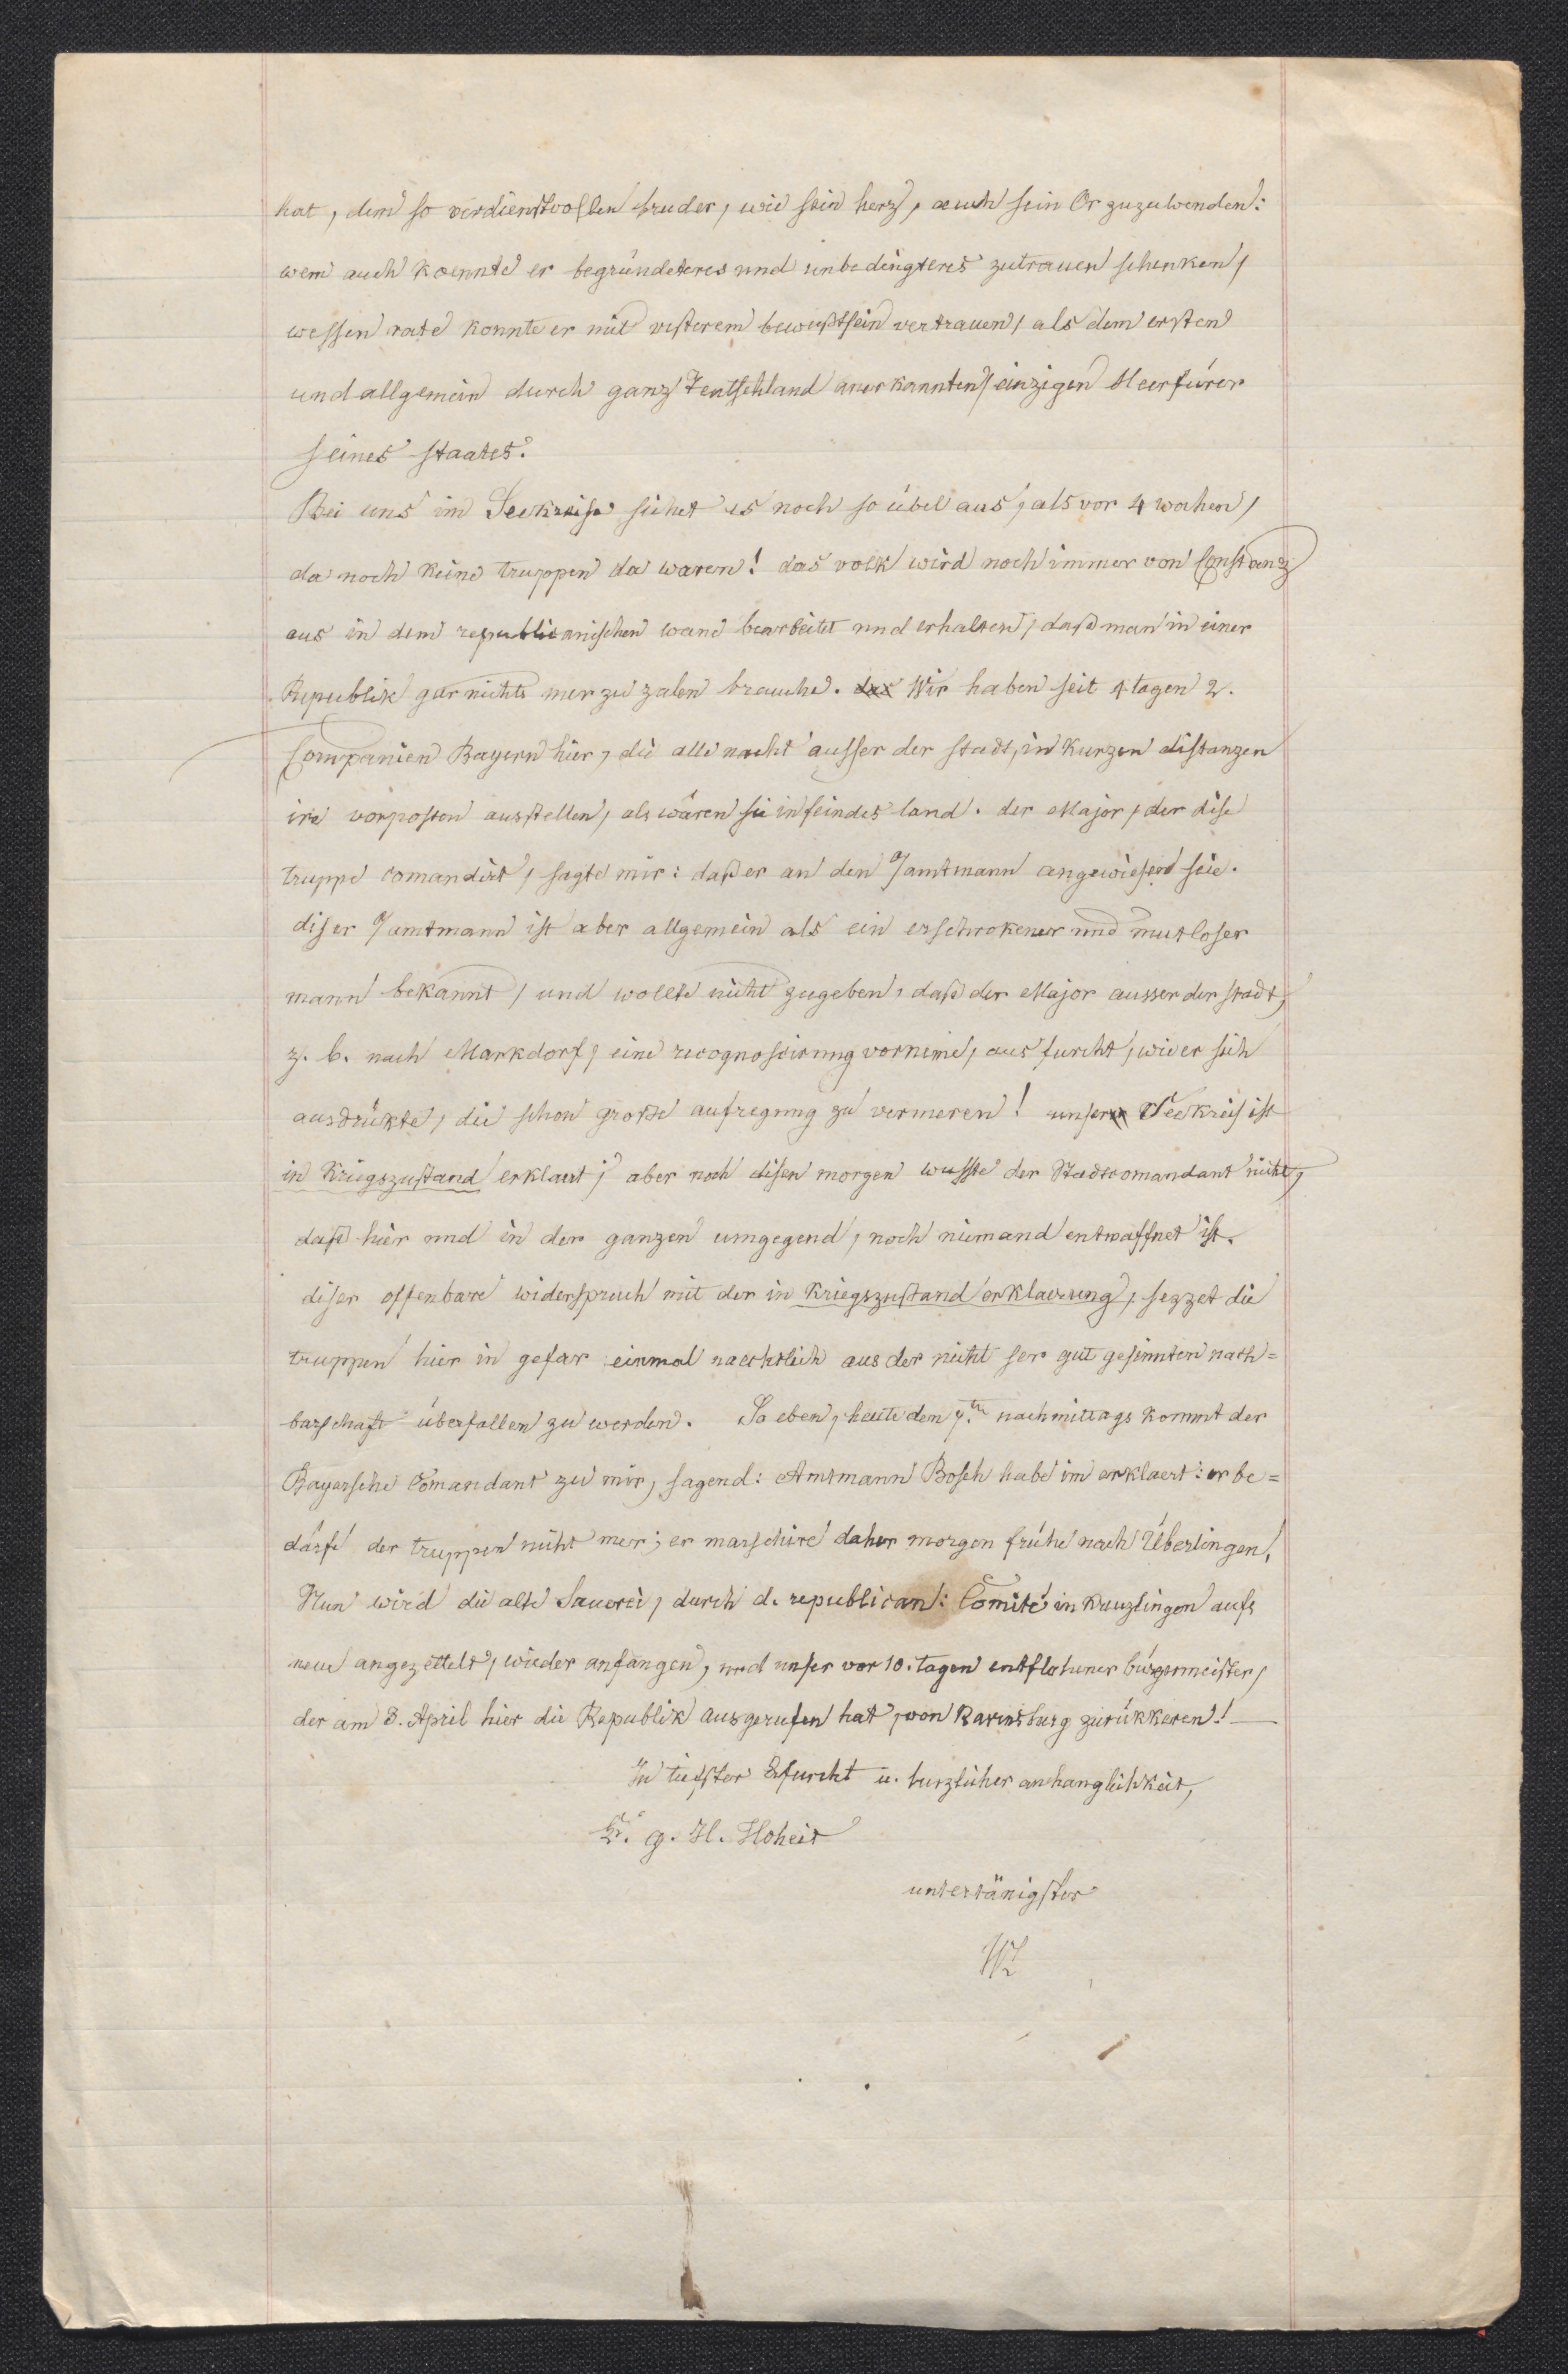 hat, dem so verdienstvollen bruder, wie sein herz, auch sein Or zuzuwenden:
wem auch koennte er begründeteres und unbedingteres zutrauen schenken,
wessen rate konnte er mit vesterem bewußtsein vertrauen, als dem ersten
und allgemein durch ganz Teutschland anerkannten, einzigen Heerfürer
seines staates.
Bei uns im Seekreise siehet es noch so übel aus, als vor 4 wochen,
da noch keine truppen da waren! das volk wird noch immer von Constanz
aus in dem republicanischen wane bearbeitet und erhalten, daß man in einer
Republik gar nichts mer zu zalen brauche. Wir haben seit 4 tagen 2.
Companien Bayern hier, die alle nacht ausser der stadt, in kurzen distanzen
ire vorposten ausstellen, als wären sie in feindes land. der Major, der dise
truppe comandirt, sagte mir: daß er an den amtmann angewiesen seie.
diser amtmann ist aber allgemein als ein erschrokener und mutloser
mann bekannt, und wollte nicht zugeben, daß der Major ausser der stadt,
z. b. nach Markdorf, eine recognoscirung vorneme, aus furcht, wie er sich
ausdrükte, die schon große aufregung zu vermeren! unser Seekreis ist
in Kriegszustand erklaert; aber noch disen morgen wusste der Stadtcomandant nicht,
daß hier und in der ganzen umgegend, noch niemand entwaffnet ist.
diser offenbare widerspruch mit der in Kriegszustand erklaerung, sezzet die
truppen hier in gefar einmal naechtlich aus der nicht ser gut gesinnten nach=
barschaft überfallen zu werden. So eben, heute dem 7.ten nachmittags kommt der
Bayersche Comandant zu mir, sagend: Amtmann Bosch habe im erklaert: er be=
därfe der truppen nicht mer; er marschire daher morgen frühe nach Überlingen.
Nun wird die alte Sauerei, durch d. republican: Comité in Kreuzlingen aufs
neue angezettelt, wieder anfangen, und unser vor 10. tagen entflohener bürgermeister,
der am 8. April hier die Republik ausgerufen hat, von Ravensburg zurükkeren!
In tiefster Erfurcht u. herzlicher anhanglichkeit,
Er. g. H. Hoheit
untertänigster